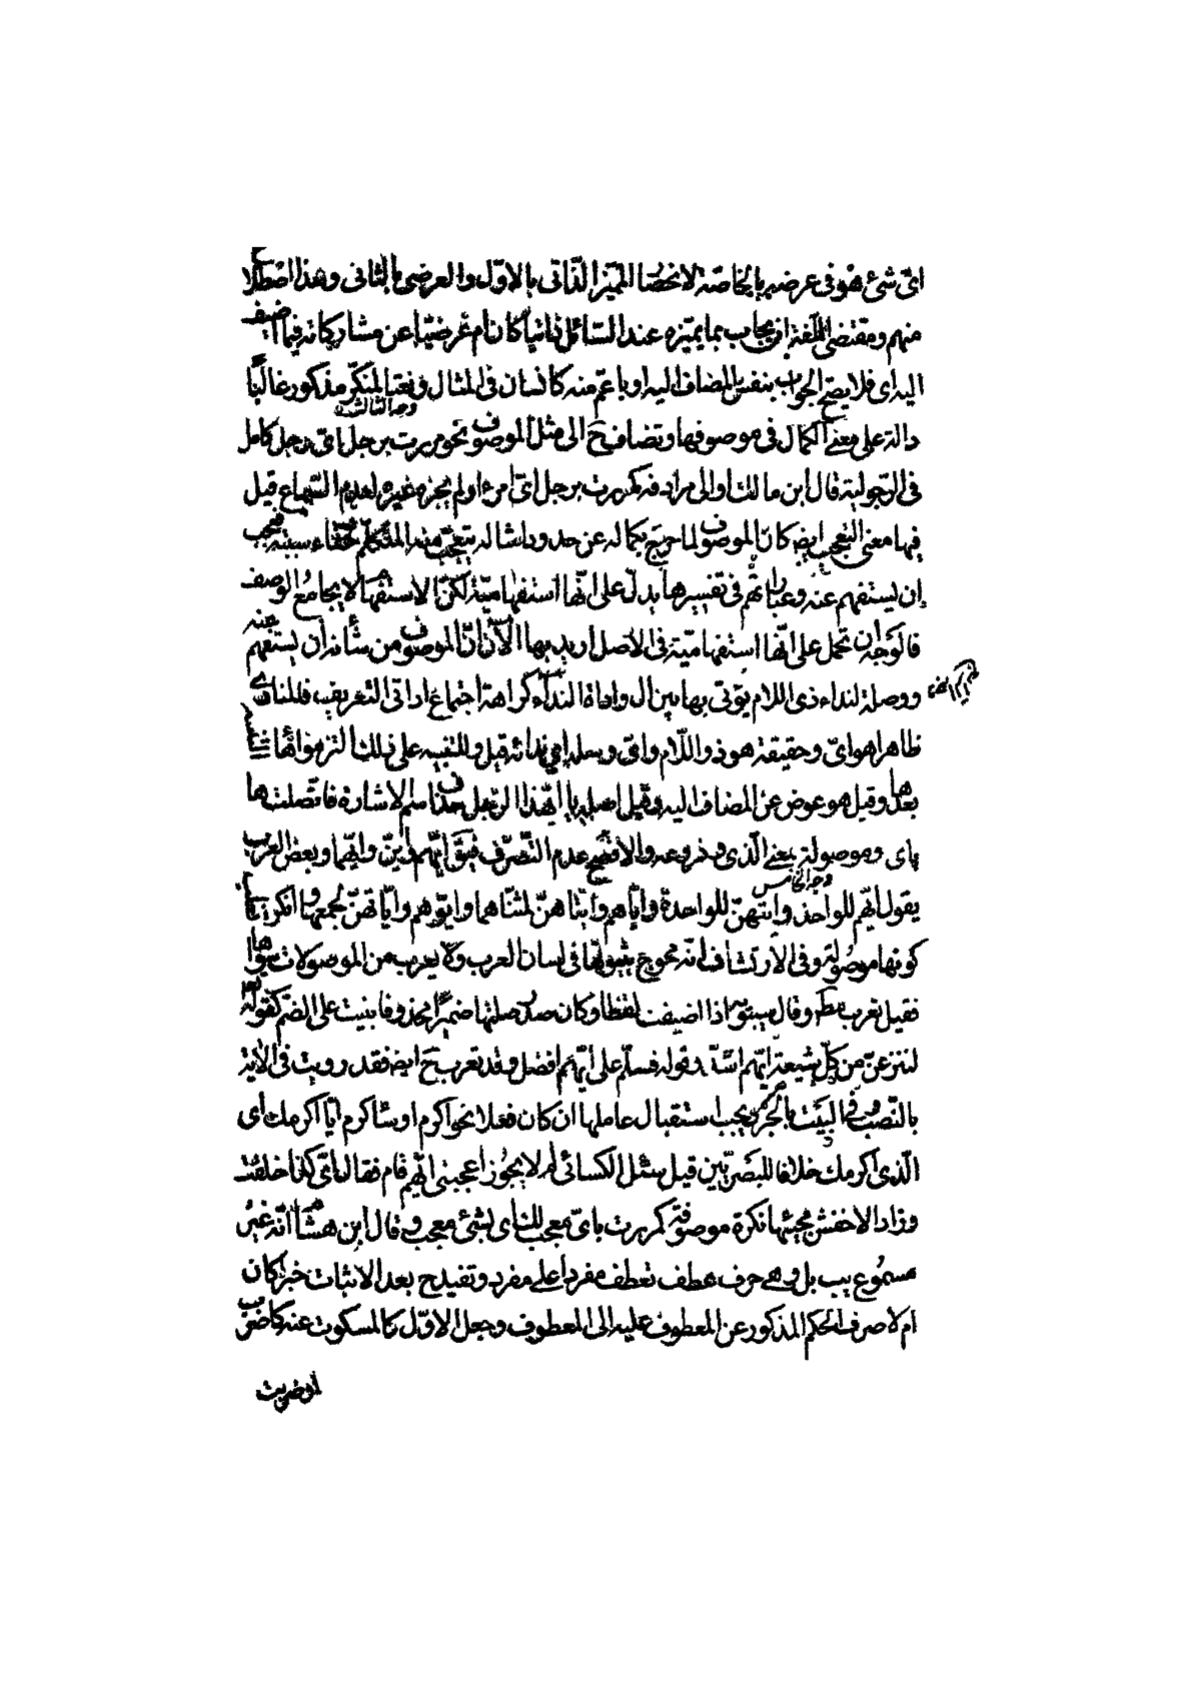 اىّ شئ هو فى عرضه بالخاصّة لانحضا المميّز الذّاتى بالاوّل والعرضى بالثانى وهذا اصطلاح
منهم ومقتضى اللّغة ان يجاب بما يميّزه عند السّائل ذاتيّا كان ام عرضيّا عن مشاركاته فيما اضيف
اليه اى فلا يصحّ الجواب بنفس المضاف اليه او باعمّ منه كانسان فى المثال ونعتا لمنكّر مذكور غالبًا
وجه الثالث
دالة على معنى الكمال فى موصوفها وتضاف ح الى مثل الموصوف نحو مررت برجل اىّ رجل كامل
فى الرّجولية قال ابن مالك او الى مرادفه كمررت برجل اىّ امرء ولم يجزه غيره لعدم السّماع قيل
فيها معنى التعجب ايضه كانّ الموصوف لما خرج بكماله عن حدود اشاله يتعجّب منه المتكلّم لخفاء سببه فيجب
ان يستفهم عنه وعباراتهم فى تفسيرها يدلّ على انّها استفهاميّة لكنّ الاستفهام لا يجامع الوصف
فالوجه ان تحمل على انّها استفهاميّة فى الاصل اريد بها الآن انّ الموصوف من شأنه ان يستفهم عنه
ووصلة لنداء ذى اللام يتوتى بها بين ال واداة النداء كراهة اجتماع اداتى التعريف فالمنادى
ظاهرا هو اىّ وحقيقة هو ذو اللّام واىّ وصلة الى ندائه قيل وللتنبيه على ذلك التزموا
بعدها وقيل هو عوض عن المضاف اليه وقيل اصله يا ايّهذا الرّجل حذف اسم الاشارة فاتّصلت ها
باى وموصولة بمعنى الّذى وفروعه والافصح عدم التّصرّف فيق ايّهم وايّهنّ وايّهما وبعض العرب
وجه الخامس
يقول ايّهم للواحد وايّتهنّ للواحدة وايّاهم وايّتاهنّ لمثنّاهما وايّوهم وايّاتهنّ لجمعهما وانكر
كونها موصولة وفى الارتشاف انّه محجوج بثبوتها فى لسان العرب ولا يعرب من الموصولات سواها
فقيل تعرب مط وقال سيبويه اذا اضيفت لفظا وكان صدر صلتها ضميرًا محذوفا بنيت على الضمّ كقوله
لننزعنّ من كلّ شيعة ايّهم اشدّ وقوله فسلّم على ايّهم افضل وقد تعرب ح ايضه فقد رويت فى الآية
بالنّصب وفى البيت بالجرّ ويجب استقبال عاملها ان كان فعلا نحو اكرم او سأكرم ايّا اكرمك اى
الّذى اكرمك خلافا للبصريّين قيل سئل الكسائى لم لا يجوز اعجبنى ايّهم قام فقال اىّ كذا خلقت
وزاد الاخفش مجيئها نكرة موصوفة كمررت باىّ معجب لك اى بشئ معجب وقال ابن هشام انّه غير
مسموع يب بل وهى حرف عطف تعطف مفردا على مفرد وتفيد ح بعد الاثبات خبرا كان
ام لا صرف الحكم المذكور عن المعطوف عليه الى المعطوف وجعل الاوّل كالمسكوت عنه كاضرب
او ضربت